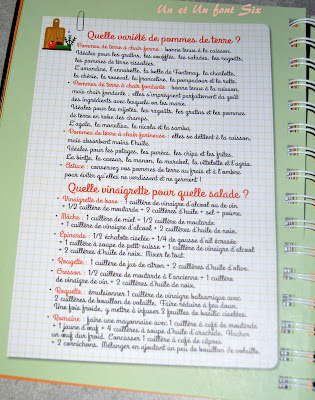 Un et Un font Six
Quelle variété de pommes de terre ?
Pommes de terre à chair ferme : bonne tenue à la cuisson.
Idéales pour les gratins, les soufflés, les salades, les ragoûts,
les pommes de terre rissolées.
L'amandine, l'annabelle, la belle de Fontenay, la charlotte,
la chérie, la roseval, la franceline, la pompadour et la ratte.
• Pommes de terre à chair fondante : bonne tenue à la cuisson,
mais chair fondante ; elles s'imprègnent parfaitement du goût
des ingrédients avec lesquels on les marie.
Idéales pour les mijotés, les ragoûts, les gratins et les pommes
de terre en robe des champs.
L'agata, la monalisa, la nicola et la samba.
• Pommes de terre à chair farineuse : elles se délitent à la cuisson,
mais absorbent moins l'huile.
Idéales pour les potages, les purées, les chips et les frites.
La bintje, la caesar, la manon, la marabel, la vitelotte et l'agria.
• Astuce : conservez vos pommes de terre au frais et à l'ombre
pour éviter qu'elles ne verdissent et ne germent !
Quelle vinaigrette pour quelle salade ?
• Vinaigrette de base : 1 cuillère de vinaigre d'alcool ou de vin
+ 1/2 cuillère de moutarde + 2 cuillères d'huile + sel + poivre.
• Mâche : 1 cuillère de miel + 1/2 cuillère de moutarde
+ 1 cuillère de vinaigre d'alcool + 2 cuillères d'huile de noix.
• Épinards : 1/2 échalote ciselée + 1/4 de gousse d'ail écrasée
+ 1 cuillère à soupe de petit-suisse + 1 cuillère de vinaigre d'alcool
+ 2 cuillères d'huile de noix. Mixer le tout.
• Rougette : 1 cuillère de jus de citron + 2 cuillères d'huile d'olive.
• Cresson : 1/2 cuillère de moutarde à l'ancienne + 1 cuillère
de vinaigre de vin + 2 cuillères d'huile de noix.
• Roquette : émulsionner 1 cuillère de vinaigre balsamique avec
2 cuillères de bouillon de volaille. Faire réduire à feu doux.
Une fois froide, y mettre à infuser 2 feuilles de basilic ciselées.
• Romaine : faire une mayonnaise avec 1 cuillère à café de moutarde
+ 1 jaune d'œuf + 4 cuillères à soupe d'huile d'arachide. Hacher
un œuf dur froid. Concasser 1 cuillère à café de câpres
+ 2 cornichons. Mélanger en ajoutant un peu de bouillon de volaille.